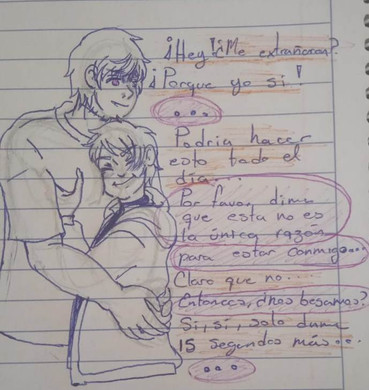 ¡Hey! ¿Me extrañaron?
¡Porque yo si!
...
Podria hacer
esto todo el
día...
Por favor, dime
que esta no es
la única razón
para estar conmigo...
Claro que no...
Entonces, ¿nos besamos?
Si, si, solo dame
15 segundos más...
...